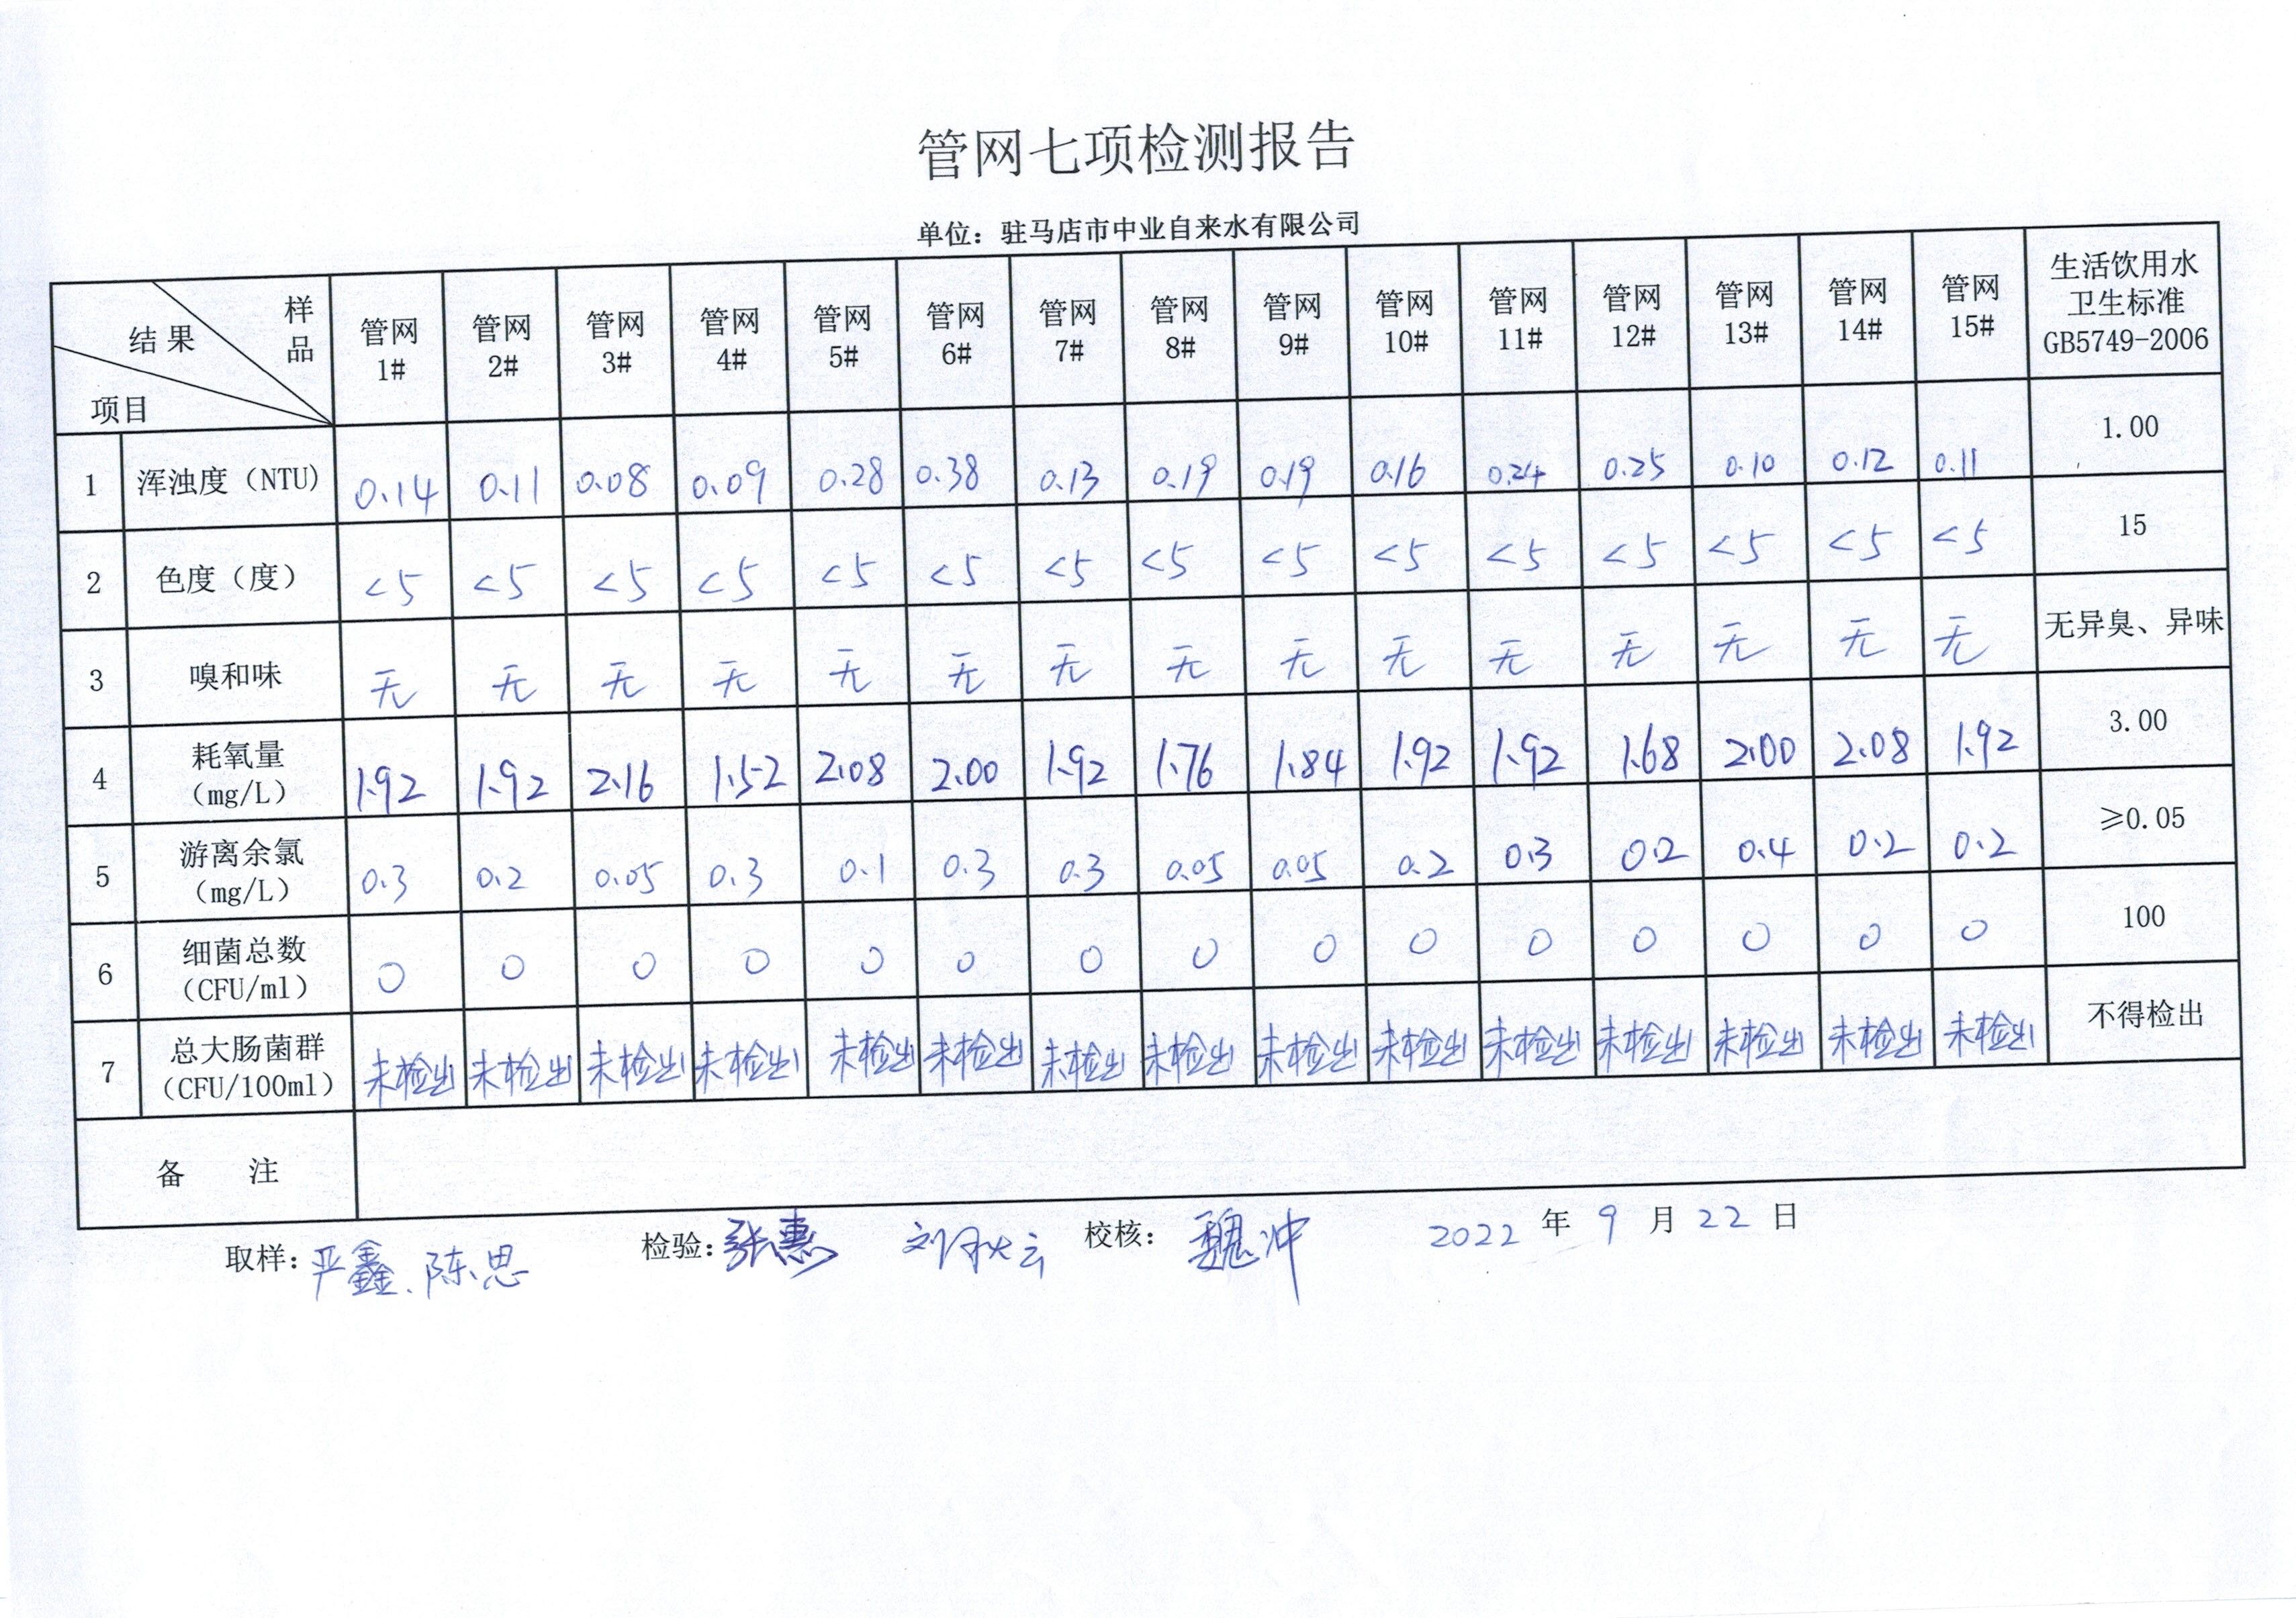 管网七项检测报告
单位：驻马店市中业自来水有限公司
结果 样品 项目 管网1# 管网2# 管网3# 管网4# 管网5# 管网6# 管网7# 管网8# 管网9# 管网10# 管网11# 管网12# 管网13# 管网14# 管网15# 生活饮用水卫生标准GB5749-2006
1 浑浊度（NTU） 0.14 0.11 0.08 0.09 0.28 0.38 0.13 0.19 0.19 0.16 0.24 0.25 0.10 0.12 0.11 1.00
2 色度（度） <5 <5 <5 <5 <5 <5 <5 <5 <5 <5 <5 <5 <5 <5 <5 15
3 嗅和味 无 无 无 无 无 无 无 无 无 无 无 无 无 无 无 无异臭、异味
4 耗氧量（mg/L） 1.92 1.92 2.16 1.52 2.08 2.00 1.92 1.76 1.84 1.92 1.92 1.68 2.00 2.08 1.92 3.00
5 游离余氯（mg/L） 0.3 0.2 0.05 0.3 0.1 0.3 0.3 0.05 0.05 0.2 0.3 0.2 0.4 0.2 0.2 ≥0.05
6 细菌总数（CFU/ml） 0 0 0 0 0 0 0 0 0 0 0 0 0 0 0 100
7 总大肠菌群（CFU/100ml） 未检出 未检出 未检出 未检出 未检出 未检出 未检出 未检出 未检出 未检出 未检出 未检出 未检出 未检出 未检出 不得检出
备 注
取样：严鑫、陈思 检验：张惠 校核：魏冲 2022 年 9 月 22 日